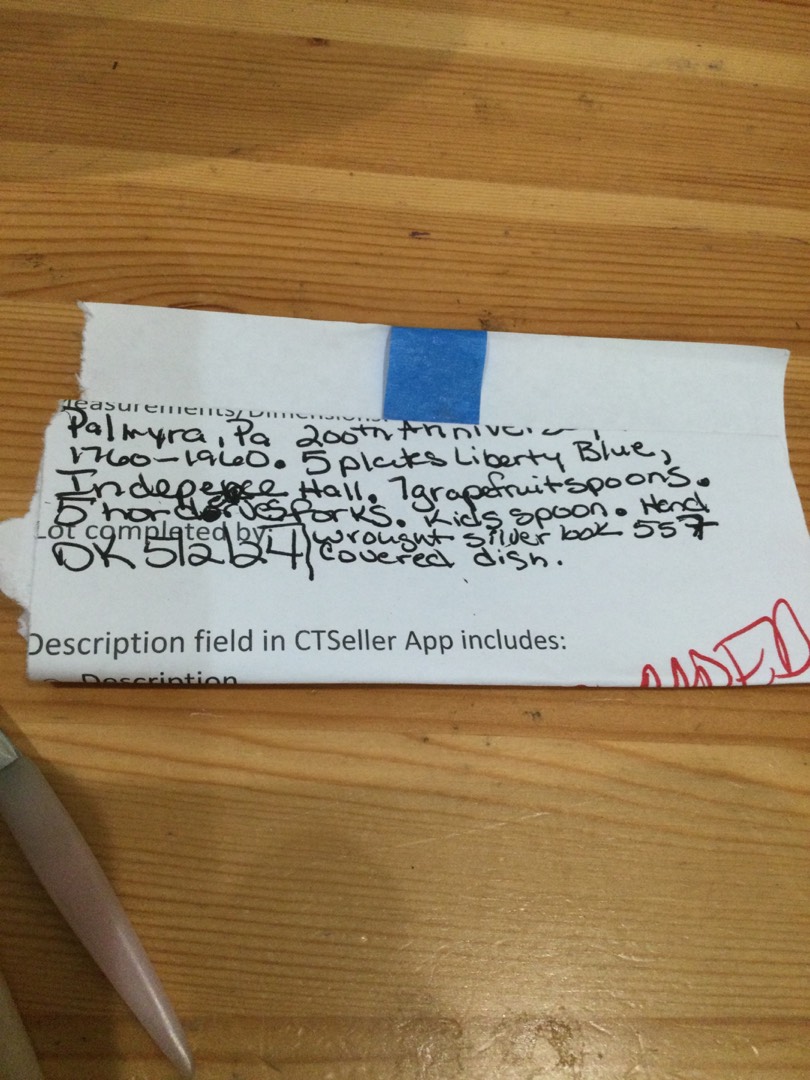 Measurements/Dimensions:
Palmyra, Pa 200th Anniversary
1760-1960. 5 plates Liberty Blue,
Hall. 7 grapefruit spoons.
5 hord forks. Kids spoon. Hand
Lot completed by: wrought silver look 557
DK 5/2/24 covered dish.
Description field in CTSeller App includes:
Description